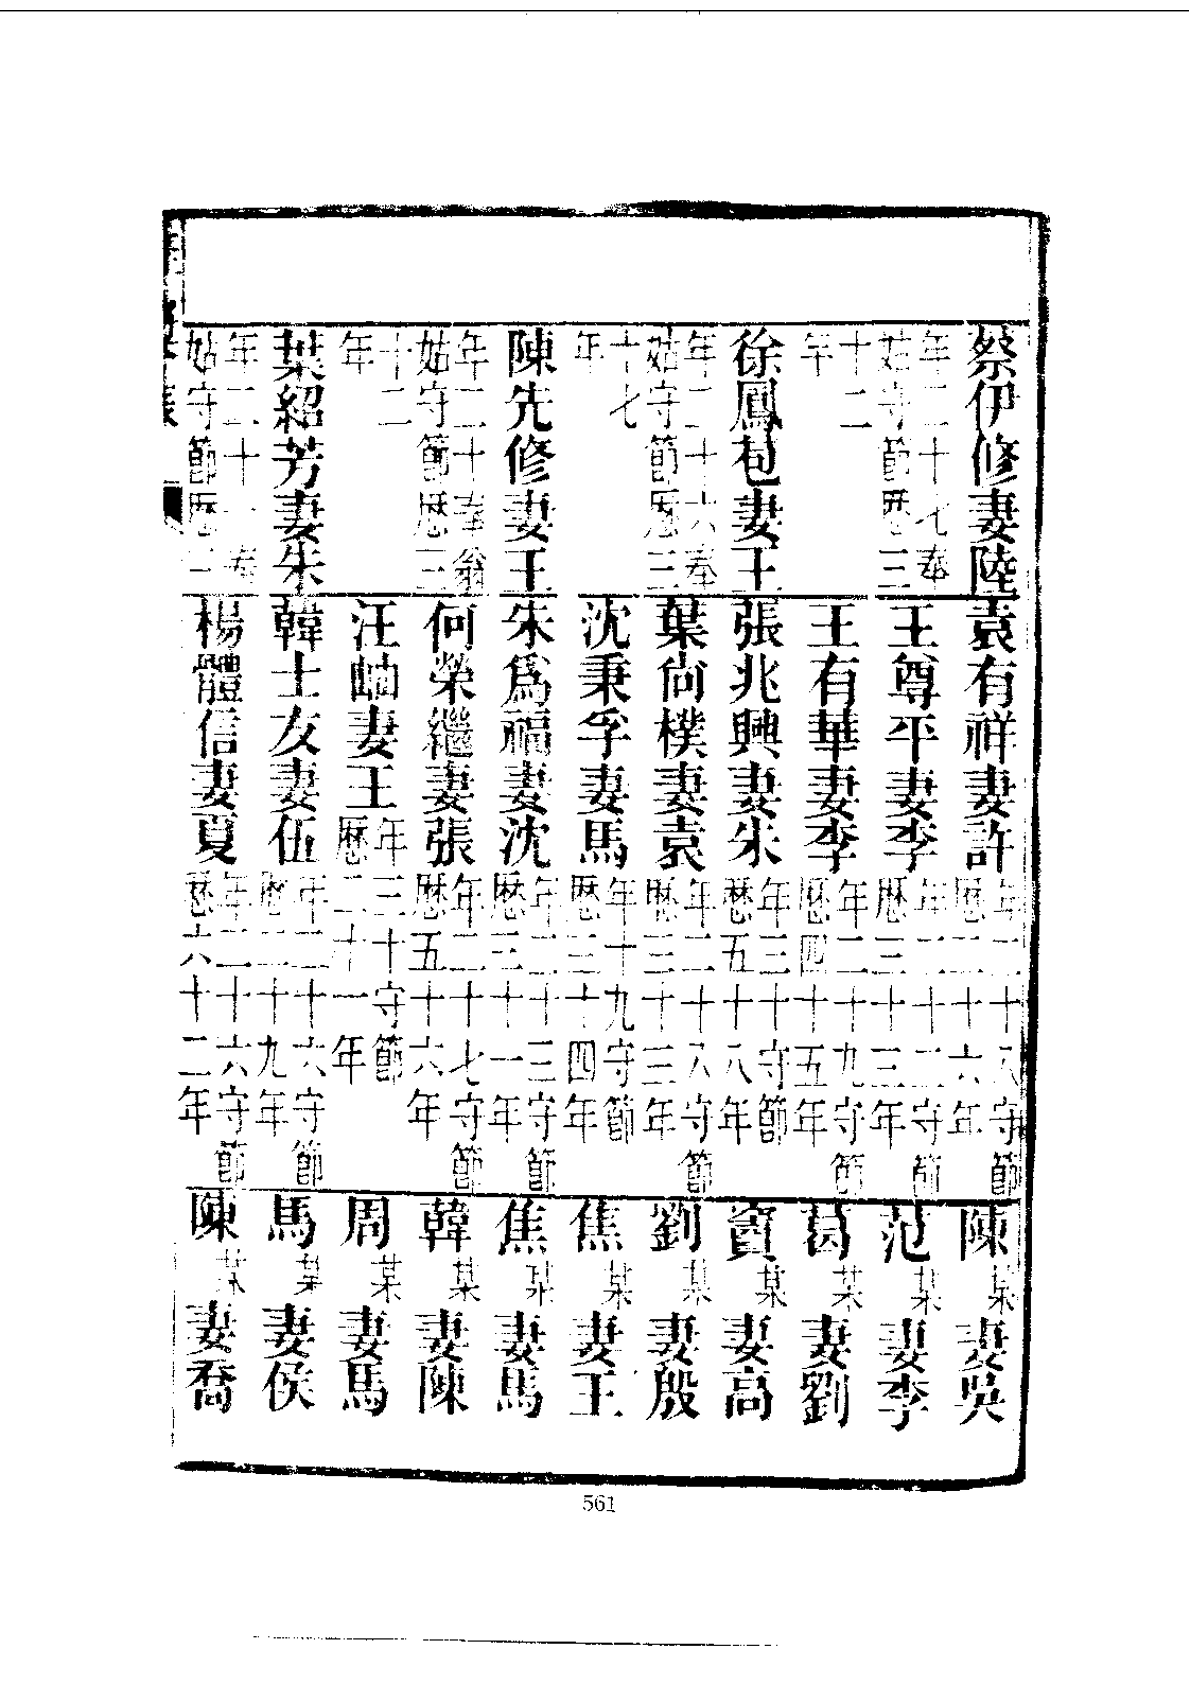 蔡伊修妻陸
年二十七奉
姑守節暦三
十二
年
徐鳳苞妻王
年二十六奉
姑守節暦三
十七
年
陳先修妻王
年二十奉翁
姑守節暦三
十二
年
葉紹芳妻朱
年二十一奉
姑守節暦二
袁有祥妻許
年二十八守節
暦二十六年
王尊平妻李
年二十二守節
暦三十三年
王有華妻李
年二十九守節
暦四十五年
張兆興妻朱
年三十守節
暦五十八年
葉尙樸妻袁
年二十八守節
暦三十三年
沈秉孚妻馬
年十九守節
暦三十四年
朱爲福妻沈
年二十三守節
暦三十一年
何榮繼妻張
年二十七守節
暦五十六年
汪岫妻王
年三十守節
暦二十一年
韓士友妻伍
年二十六守節
暦二十九年
楊體信妻夏
年二十六守節
暦六十二年
陳某妻吳
范某妻李
葛某妻劉
竇某妻高
劉某妻殷
焦某妻王
焦某妻馬
韓某妻陳
周某妻馬
馬某妻侯
陳某妻喬
561